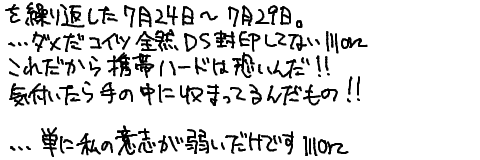 を繰り返した7月24日～7月29日。
…ダメだコイツ全然、DS封印してないlllorz
これだから携帯ハードは恐いんだ!!
気付いたら手の中に収まってるんだもの!!
…単に私の意志が弱いだけですlllorz